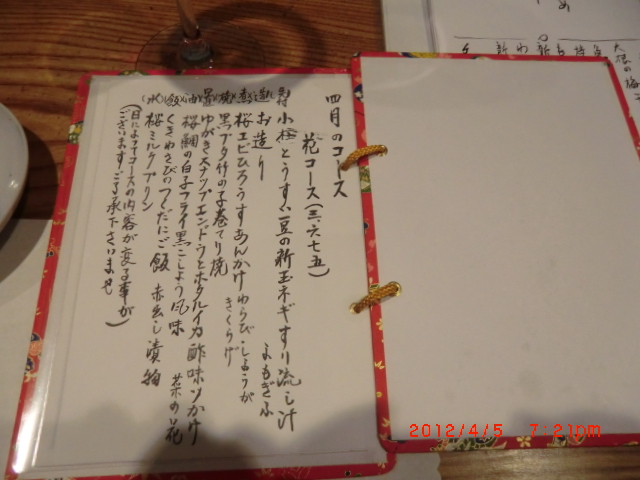 四月のコース
花コース(三、六七五)
先付 小柱とうすい豆の新玉ネギすり流し汁
よもぎふ
造 お造り
煮 桜エビひろうすあんかけ わらび しょうが
きくらげ
焼 黒ブタ竹の子巻てり焼
冷 ゆがきスナップエンドウとホタルイカ酢味ソかけ
油 桜鯛の白子フライ黒こしょう風味 菜の花
飯 くきわさびのつくだにご飯 赤出し 漬物
水 桜ミルクプリン
(日によってコースの内容が変る事が
ございますすご了承下さいませ)
2012/4/5 7:21pm